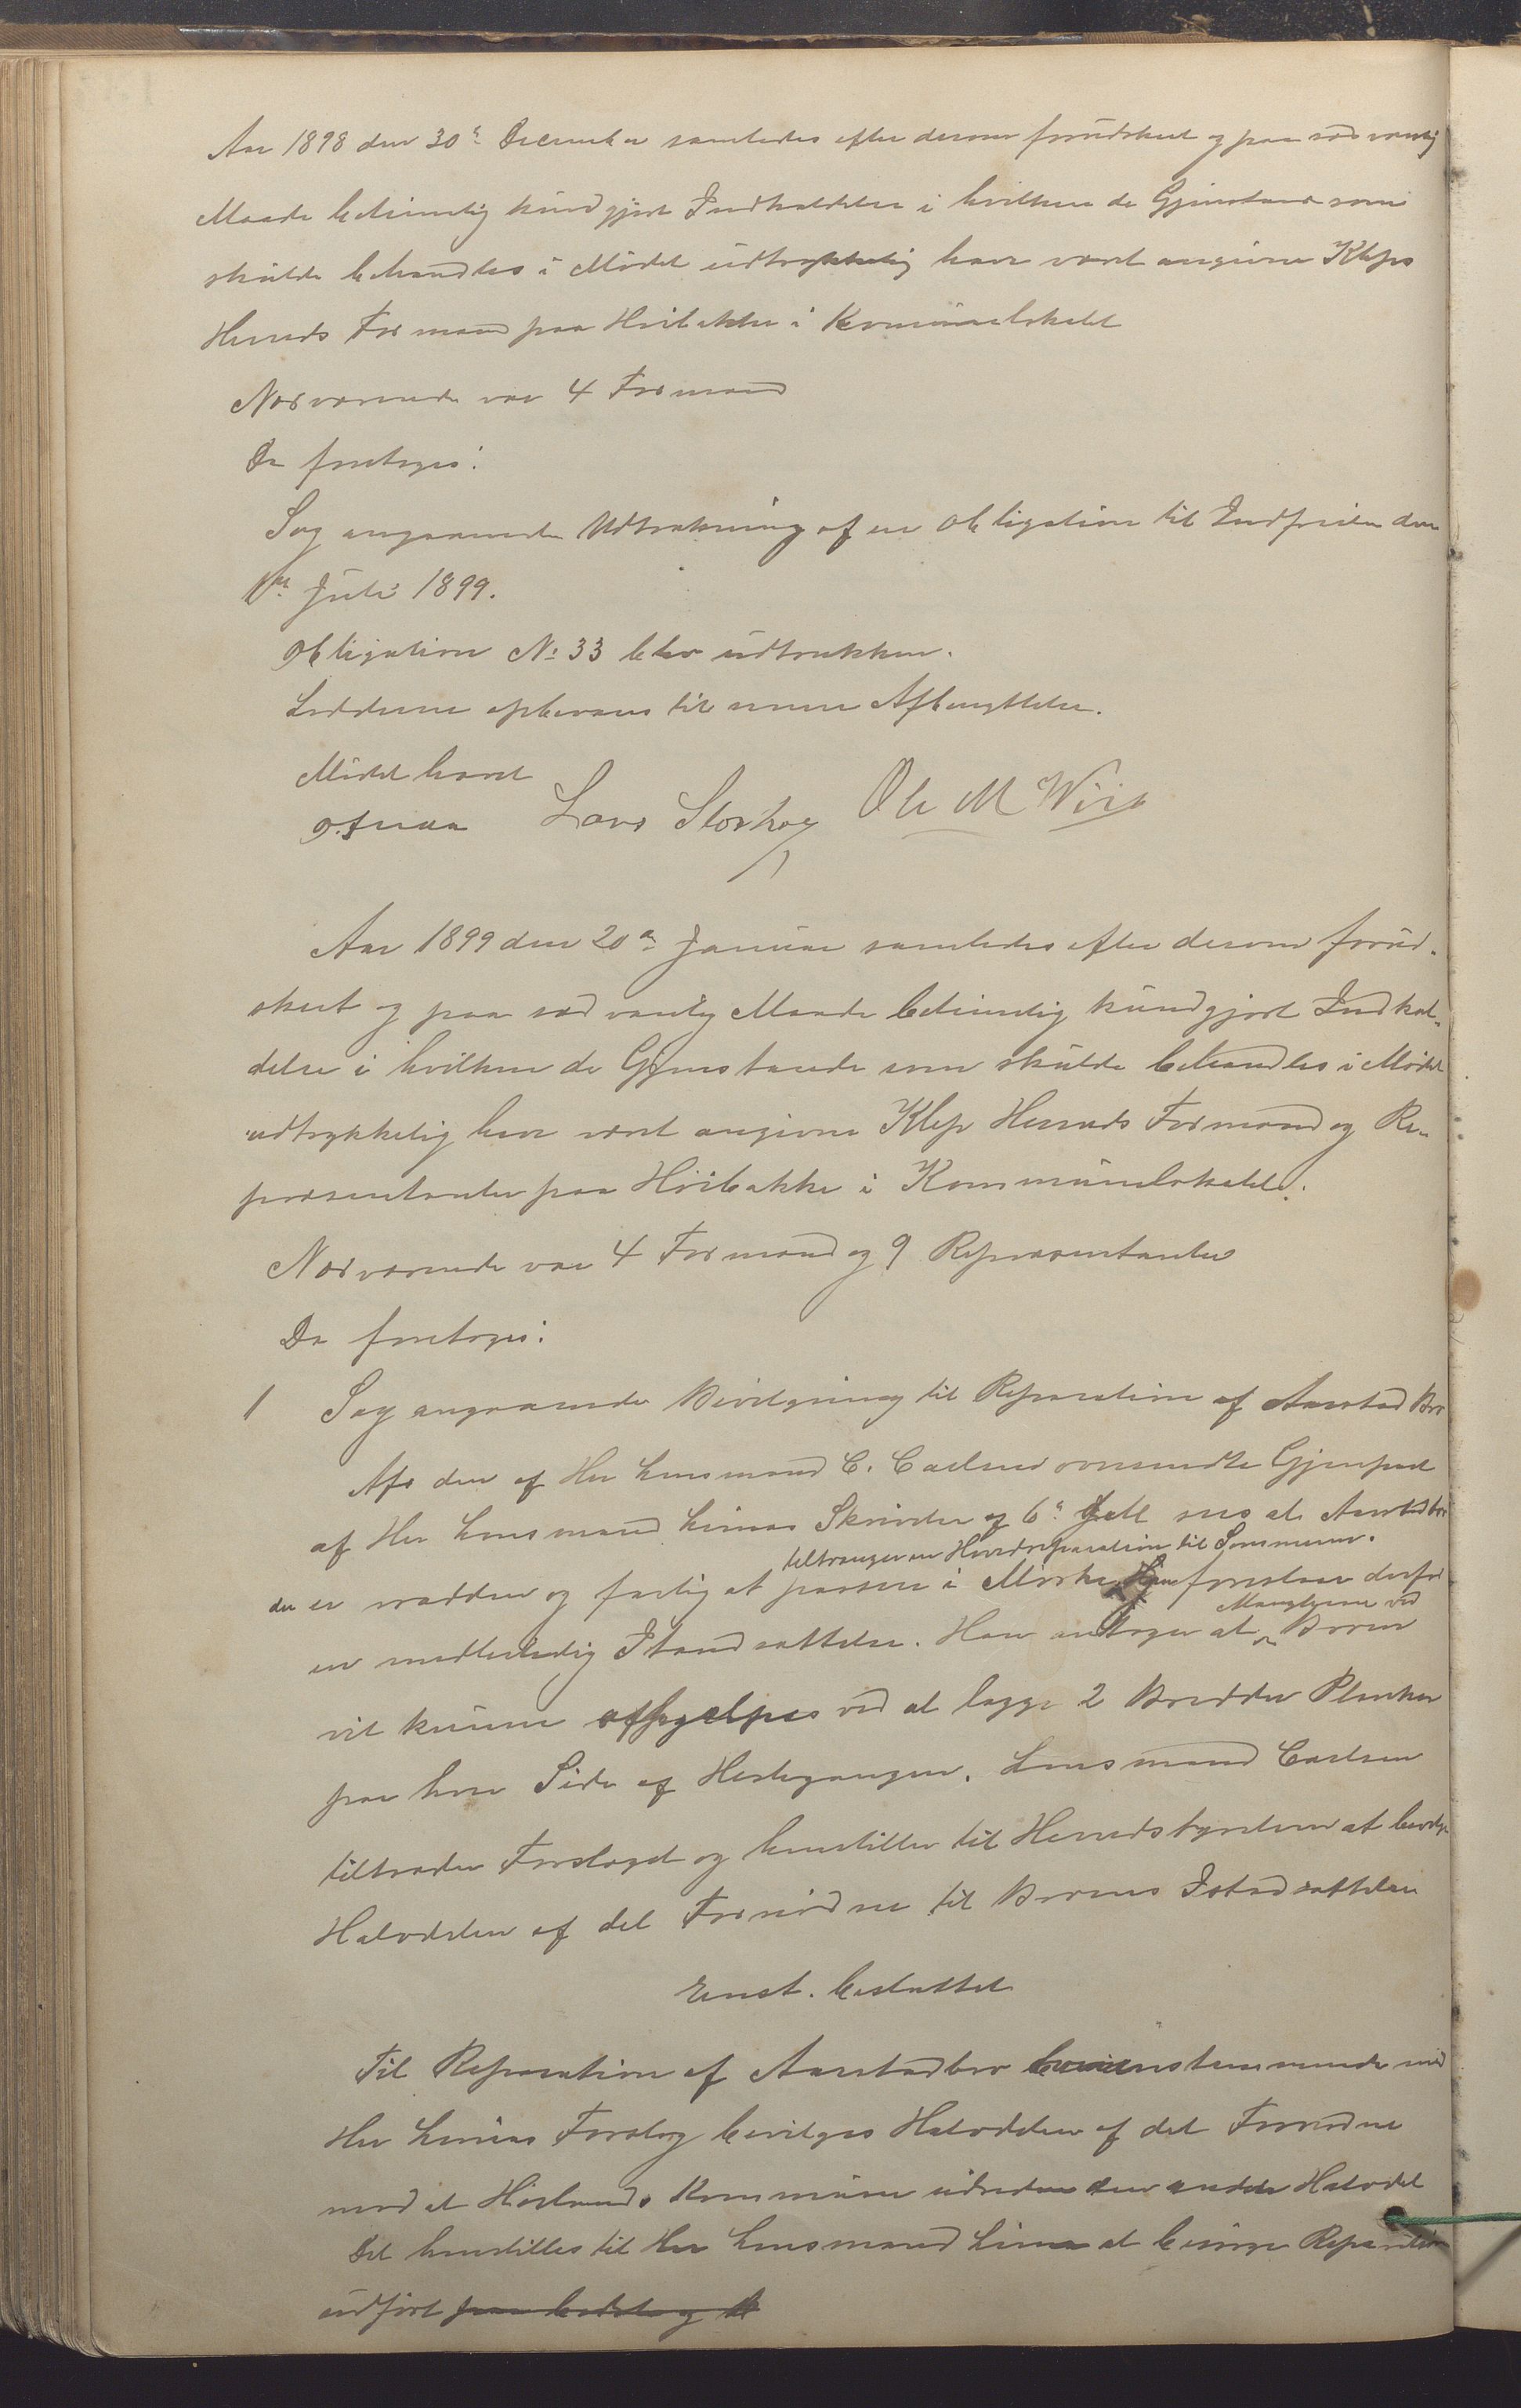 Aar 1898 den 30te December samledes efter derom forudskeet og paa sædvanlig
Maade betimelig kundgjort Indkaldelse i hvilken de Gjenstande som
skulde behandles i Mødet udtrykkelig have været angivne Kleps
Herreds Formænd paa Høibakke i Kommunelokalet
Nærværende var 4 Formænd
Da foretoges:
Sag angaaende Udtrækning af en Obligation til Indfrielse den
1ste Juli 1899.
Obligation No 33 blev udtrukken.
Lodderne opbevares til senere Afbenyttelse.
Mødet hævet
Lars Storhoug Ole M Wiig
Aar 1899 den 20de Januar samledes efter derom forud-
skeet og paa sædvanlig Maade betimelig kundgjort Indkal-
delse i hvilken de Gjenstande som skulde behandles i Mødet
udtrykkelig have været angivne Klep Herreds Formænd og Re-
præsentanter paa Høibakke i Kommunelokalet.
Nærværende var 4 Formænd og 9 Repræsentanter
Da foretoges:
1 Sag angaaende Bevilgning til Reparation af Aarstad Bro
Af den af Her Lensmand C. Carlsen oversendte Gjenpart
af Her Lensmand Limas Skrivelse af 6te ds sees at Aarstadbro
tiltrænger en Hovedreparation til Sommeren.
der er raadden og farlig at passere i Mørke Han foreslaar derfor
Manglerne ved
en midlertidig Istandsættelse. Han antager at Broen
vil kunne afhjælpes ved at lægge 2 Bredder Planker
paa hver Side af Hestegangen. Lensmand Carlsen
tiltræder Forslaget og henstiller til Herredstyrelsen at bevilge
Halvdelen af det Fornødne til Broens Istandsættelse
Enst. besluttet
Til Reparation af Aarstadbro overensstemmende med
Her Limas Forslag bevilges Halvdelen af det Fornødne
mod at Høilands Kommune udreder den anden Halvdel
Det henstilles til Her Lensmand Lima at besørge Reparationen
udført paa bedste og